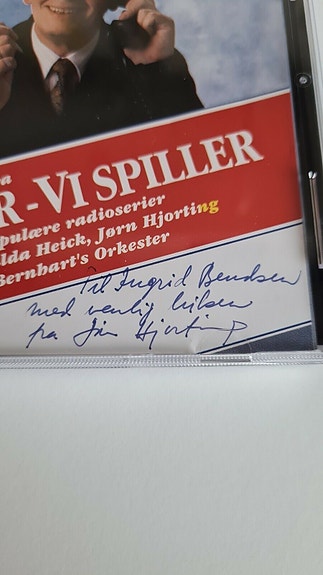 R - VI SPILLER
pulære radioserier
lda Heick, Jørn Hjorting
Bernhart's Orkester
Til Ingrid Bendsen
med venlig hilsen
fra Jørn Hjorting